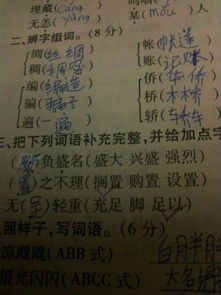 埋藏(cáng)
无恙(yàng) 某(mǒu)人
二、辨字组词。(8分)
绸(丝绸) 帐(帐篷)
稠( ) 账(记账)
编( ) 侨(华侨)
骗(骗子) 桥(木桥)
遍(一遍) 轿(轿车)
三、把下列词语补充完整,并给加点字
( )负盛名(盛大 兴盛 强烈)
(置)之不理(搁置 购置 设置)
无(足)轻重(充足 脚 足以)
照样子,写词语。(6分)
凉飕飕(ABB式)
银光闪闪(ABCC式) 大名